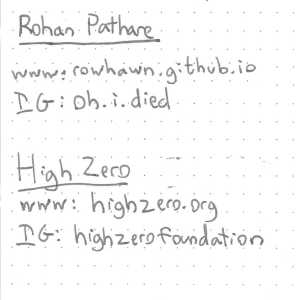 Rohan Pathare
www: rowhawn.github.io
IG: oh.i.died
High Zero
www: highzero.org
IG: highzerofoundation